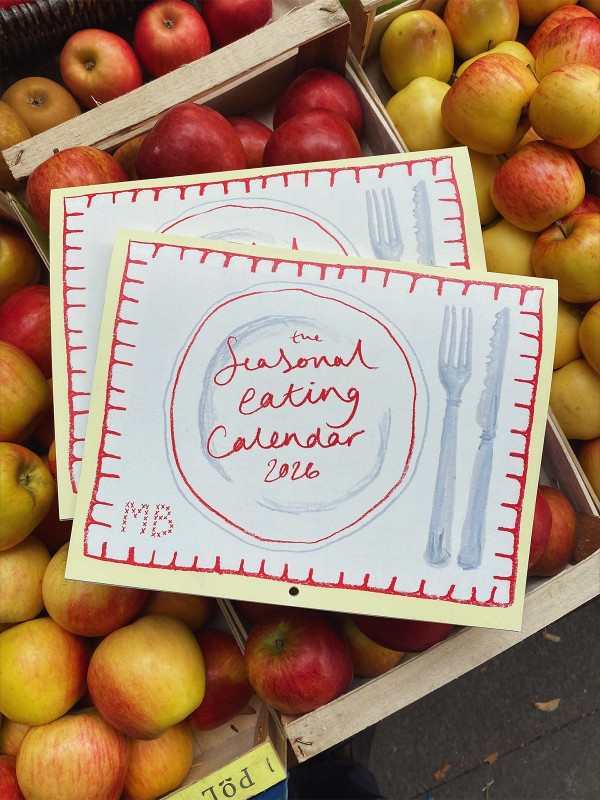 the
Seasonal
eating
Calendar
2026